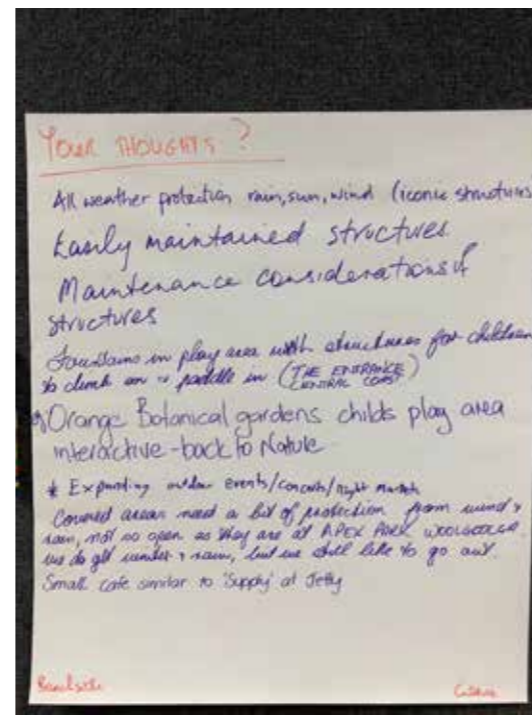 YOUR THOUGHTS?
All weather protection rain, sun, wind (iconic structures)
Easily maintained structures
Maintenance considerations of
structures
Fountains in play area with structures for children
to climb on & paddle in (THE ENTRANCE
CENTRAL COAST)
Orange Botanical gardens childs play area
interactive - back to Nature
* Expanding outdoor events/concerts/night markets
Covered areas need a bit of protection from wind &
rain, not so open as they are at APEX PARK WOOLGOOLGA
we do get winter & rain, but we still like to go out.
Small cafe similar to 'Supply' at Jetty